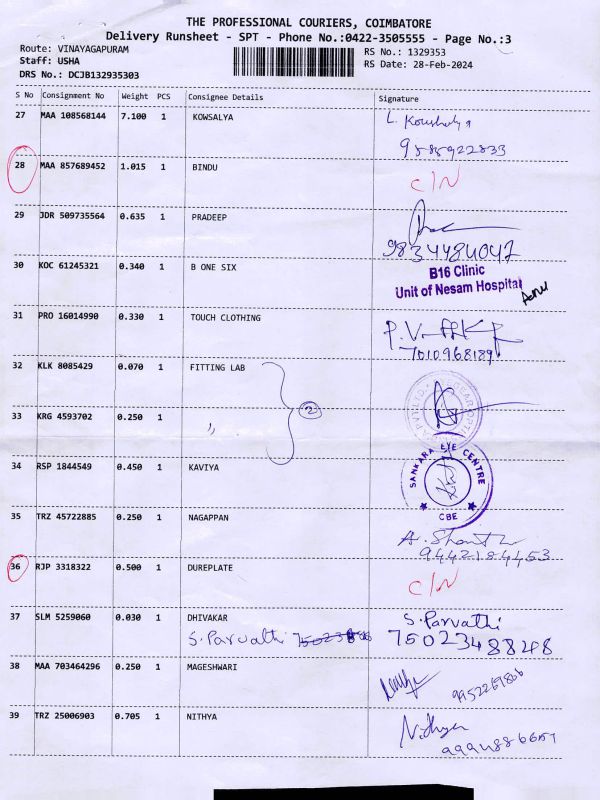 THE PROFESSIONAL COURIERS, COIMBATORE
Delivery Runsheet - SPT - Phone No.:0422-3505555 - Page No.:3
Route: VINAYAGAPURAM RS No.: 1329353
Staff: USHA RS Date: 28-Feb-2024
DRS No.: DCJB132935303
S No Consignment No Weight PCS Consignee Details Signature
27 MAA 108568144 7.100 1 KOWSALYA L. Kowshalya
9585922833
28 MAA 857689452 1.015 1 BINDU C/N
29 JDR 509735564 0.635 1 PRADEEP
9834484047
30 KOC 61245321 0.340 1 B ONE SIX B16 Clinic
Unit of Nesam Hospital
31 PRO 16014990 0.330 1 TOUCH CLOTHING
7010968189
32 KLK 8085429 0.070 1 FITTING LAB
33 KRG 4593702 0.250 1 〃 2
34 RSP 1844549 0.450 1 KAVIYA SANKARA EYE CENTRE
CBE
35 TRZ 45722885 0.250 1 NAGAPPAN
9442184453
36 RJP 3318322 0.500 1 DUREPLATE C/N
37 SLM 5259060 0.030 1 DHIVAKAR S. Parvathi
S. Parvathi 7502348848
38 MAA 703464296 0.250 1 MAGESHWARI
39 TRZ 25006903 0.705 1 NITHYA Nithya